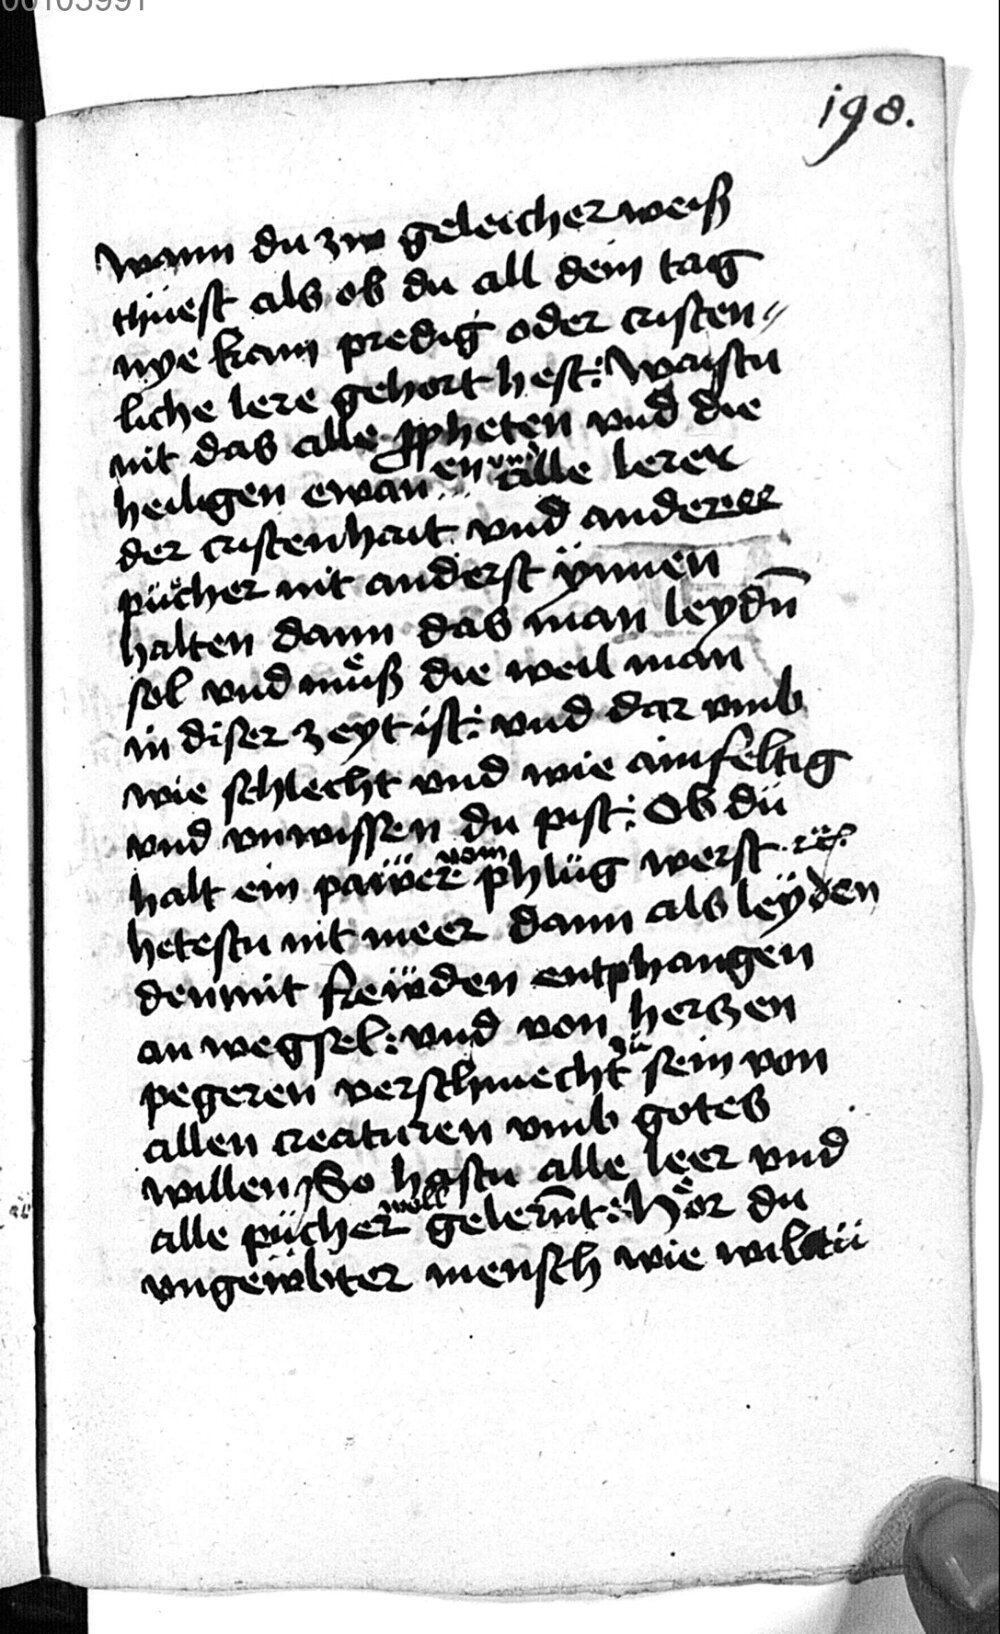 198.
wann du zw geleicher weiß
thüest als ob du all dein tag
nye kain predig oder cristen〃
liche lere gehort hest: Waistu
nit das alle ꝓpheten vnd die
heiligen ewan en vnd alle lerer
der cristenhait vnd anderer
püͤcher nit anderst ÿnnen
halten dann das man leydn̄
sol vnd müͤß die weil man
in diser zeyt ist: vnd dar vmb
wie schlecht vnd wie ainfeltig
vnd vnwissen du pist: Ob dü
halt ein paẅer vom phlüg werst
hetestu nit meer dann als leÿden
den mit freẅden entphangen
an wegsel: vnd von herczen
pegeren verschmecht zü sein von
allen creaturen vmb gotes
willen So hastu alle leer vnd
alle pücher woll gelern̄t: Hoͤr du
vngeẅbter mensch wie wiltü